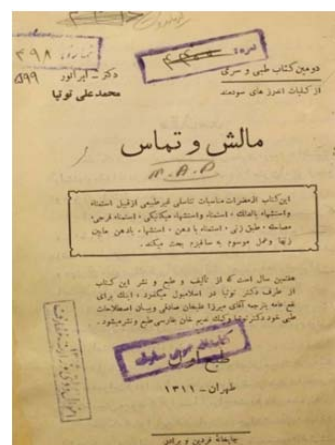 نمره:
۴۹۸
۵۹۹
دومین کتاب طبی و سری
از کلیات اندرز های سودمند
دکتر - اپراتور
محمد علی توتیا
مالش و تماس
M. A. D
این کتاب از مضرات مناسبات تناسلی غیرطبیعی از قبیل استمناء
واستشهاء بالدلک، استمناء واستشهاء میکانیکی، استمناء فرجی،
مصاحقه، طبق زنی، استمناء با دهن، استشهاء بادهن مابین
زنها وعمل موسوم به سافیزم بحث میکند.
هفتمین سال است که از تألیف و طبع و نشر این کتاب
از طرف دکتر توتیا در اسلامبول میگذرد، اینک برای
نفع عامه بترجمه آقای میرزا علیخان صادقی وبیان اصطلاحات
طبی خود دکتر توتیا و کمک ندیم خان بفارسی طبع و نشر میشود.
طبع اول
طهران - ۱۳۱۱
چاپخانه فردین و برادر